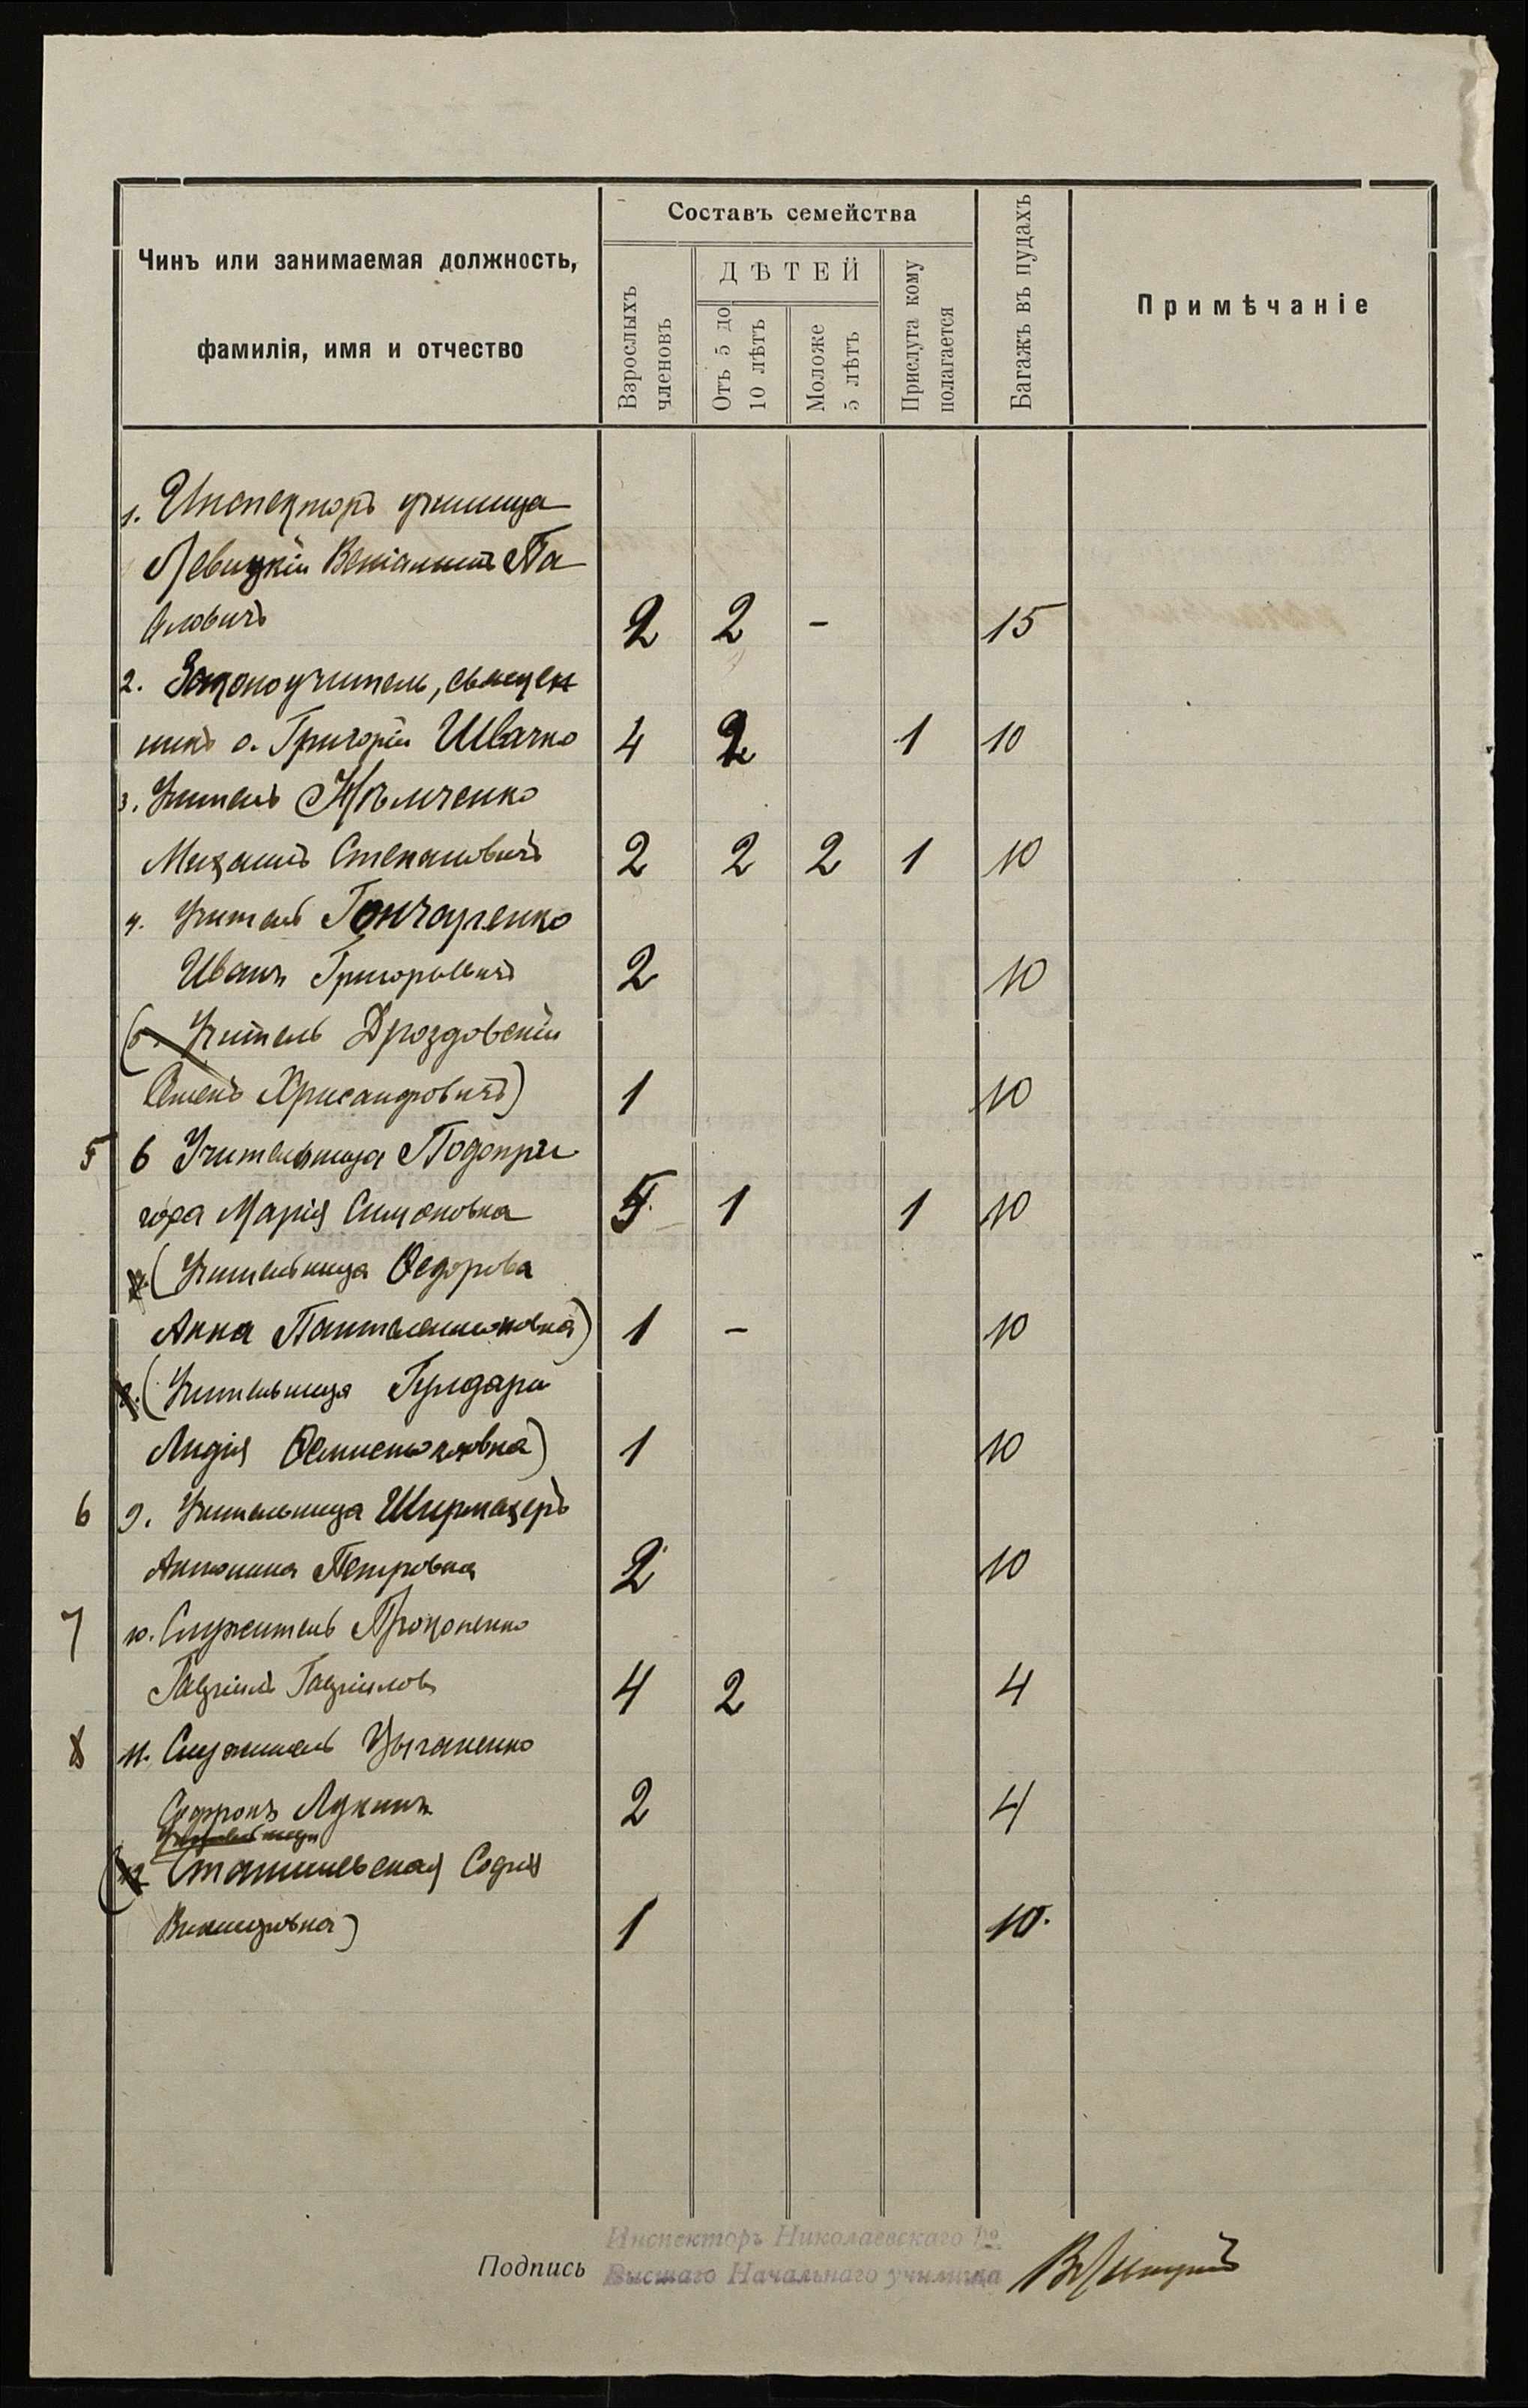 Составъ семейства
Чинъ или занимаемая должность,
фамилія, имя и отчество
Взрослыхъ членовъ
ДѢТЕЙ
Отъ 5 до 10 лѣтъ
Моложе 5 лѣтъ
Прислуга кому полагается
Багажъ въ пудахъ
Примѣчаніе
1. Инспекторъ училища
Левицкій Веніаминъ Па
вловичъ 2 2 - 15
2. Законоучитель, священ
никъ о. Григорій Швачко 4 2 1 10
3. Учитель Нѣмченко
Михаилъ Степановичъ 2 2 2 1 10
4. Учитель Гончаренко
Иванъ Григорьевичъ 2 10
(5. Учитель Дроздовскій
Семенъ Хрисанфовичъ) 1 10
5 6 Учительница Подопри
гора Марія Симоновна 5 1 1 10
7. (Учительница Ѳедорова
Анна Пантелеимоновна) 1 - 10
8. (Учительница
Лидія Ѳемистокловна) 1 10
6 9. Учительница Ширмахеръ
Антонина Петровна 2 10
7 10. Служитель Прокопенко
Гавріилъ Гавріиловъ 4 2 4
8 11. Служитель Цыганенко
Софронъ Лукичъ 2 4
Учительница
(12 София
1 10.
Подпись
Инспекторъ Николаевскаго 1го
Высшаго Начальнаго училища
ВЛевицкій